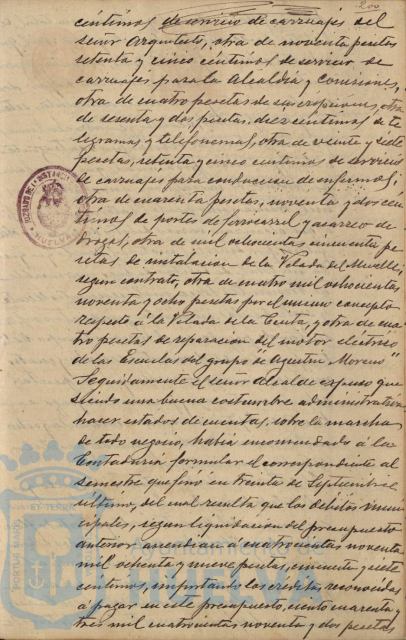 200
céntimos de servicio de carruajes del
señor Arquitecto, otra de noventa pesetas
setenta y cinco centimos de servicio de
carruajes para la Alcaldía y Comisiones,
otra de cuatro pesetas de suscripciones, otra
de sesenta y dos pesetas, diez centimos de te
legramas y telefonemas, otra de veinte y siete
pesetas, setenta y cinco centimos de servicio
de carruajes para conduccion de enfermos;
otra de cuarenta pesetas, noventa y dos cen
timos de portes de ferrocarril y acarreo de
drogas, otra de mil ochocientas cincuenta pe
setas de instalacion de la Velada del Muelle
segun contrato, otra de cuatro mil ochocientas
noventa y ocho pesetas por el mismo concepto
respecto á la Velada de la Cinta, y otra de cua
tro pesetas de reparacion del motor eléctrico
de las Escuelas del grupo "Agustin Moreno"
Seguidamente el señor Alcalde expuso que
siendo una buena costumbre administrativa
hacer estados de cuentas, sobre la marcha
de todo negocio, había encomendado á la
Contaduría formular el correspondiente al
semestre que finó en treinta de Septiembre
último, del cual resulta que los débitos muni
cipales, segun liquidacion del presupuesto
anterior ascendian á cuatrocientas noventa
mil ochenta y nueve pesetas, cincuenta y siete
centimos, importando los créditos reconocidos
á pagar en este presupuesto, ciento cuarenta y
tres mil cuatrocientas noventa y dos pesetas
PORTUS MARIS
ET TERRÆ
Ayuntamiento